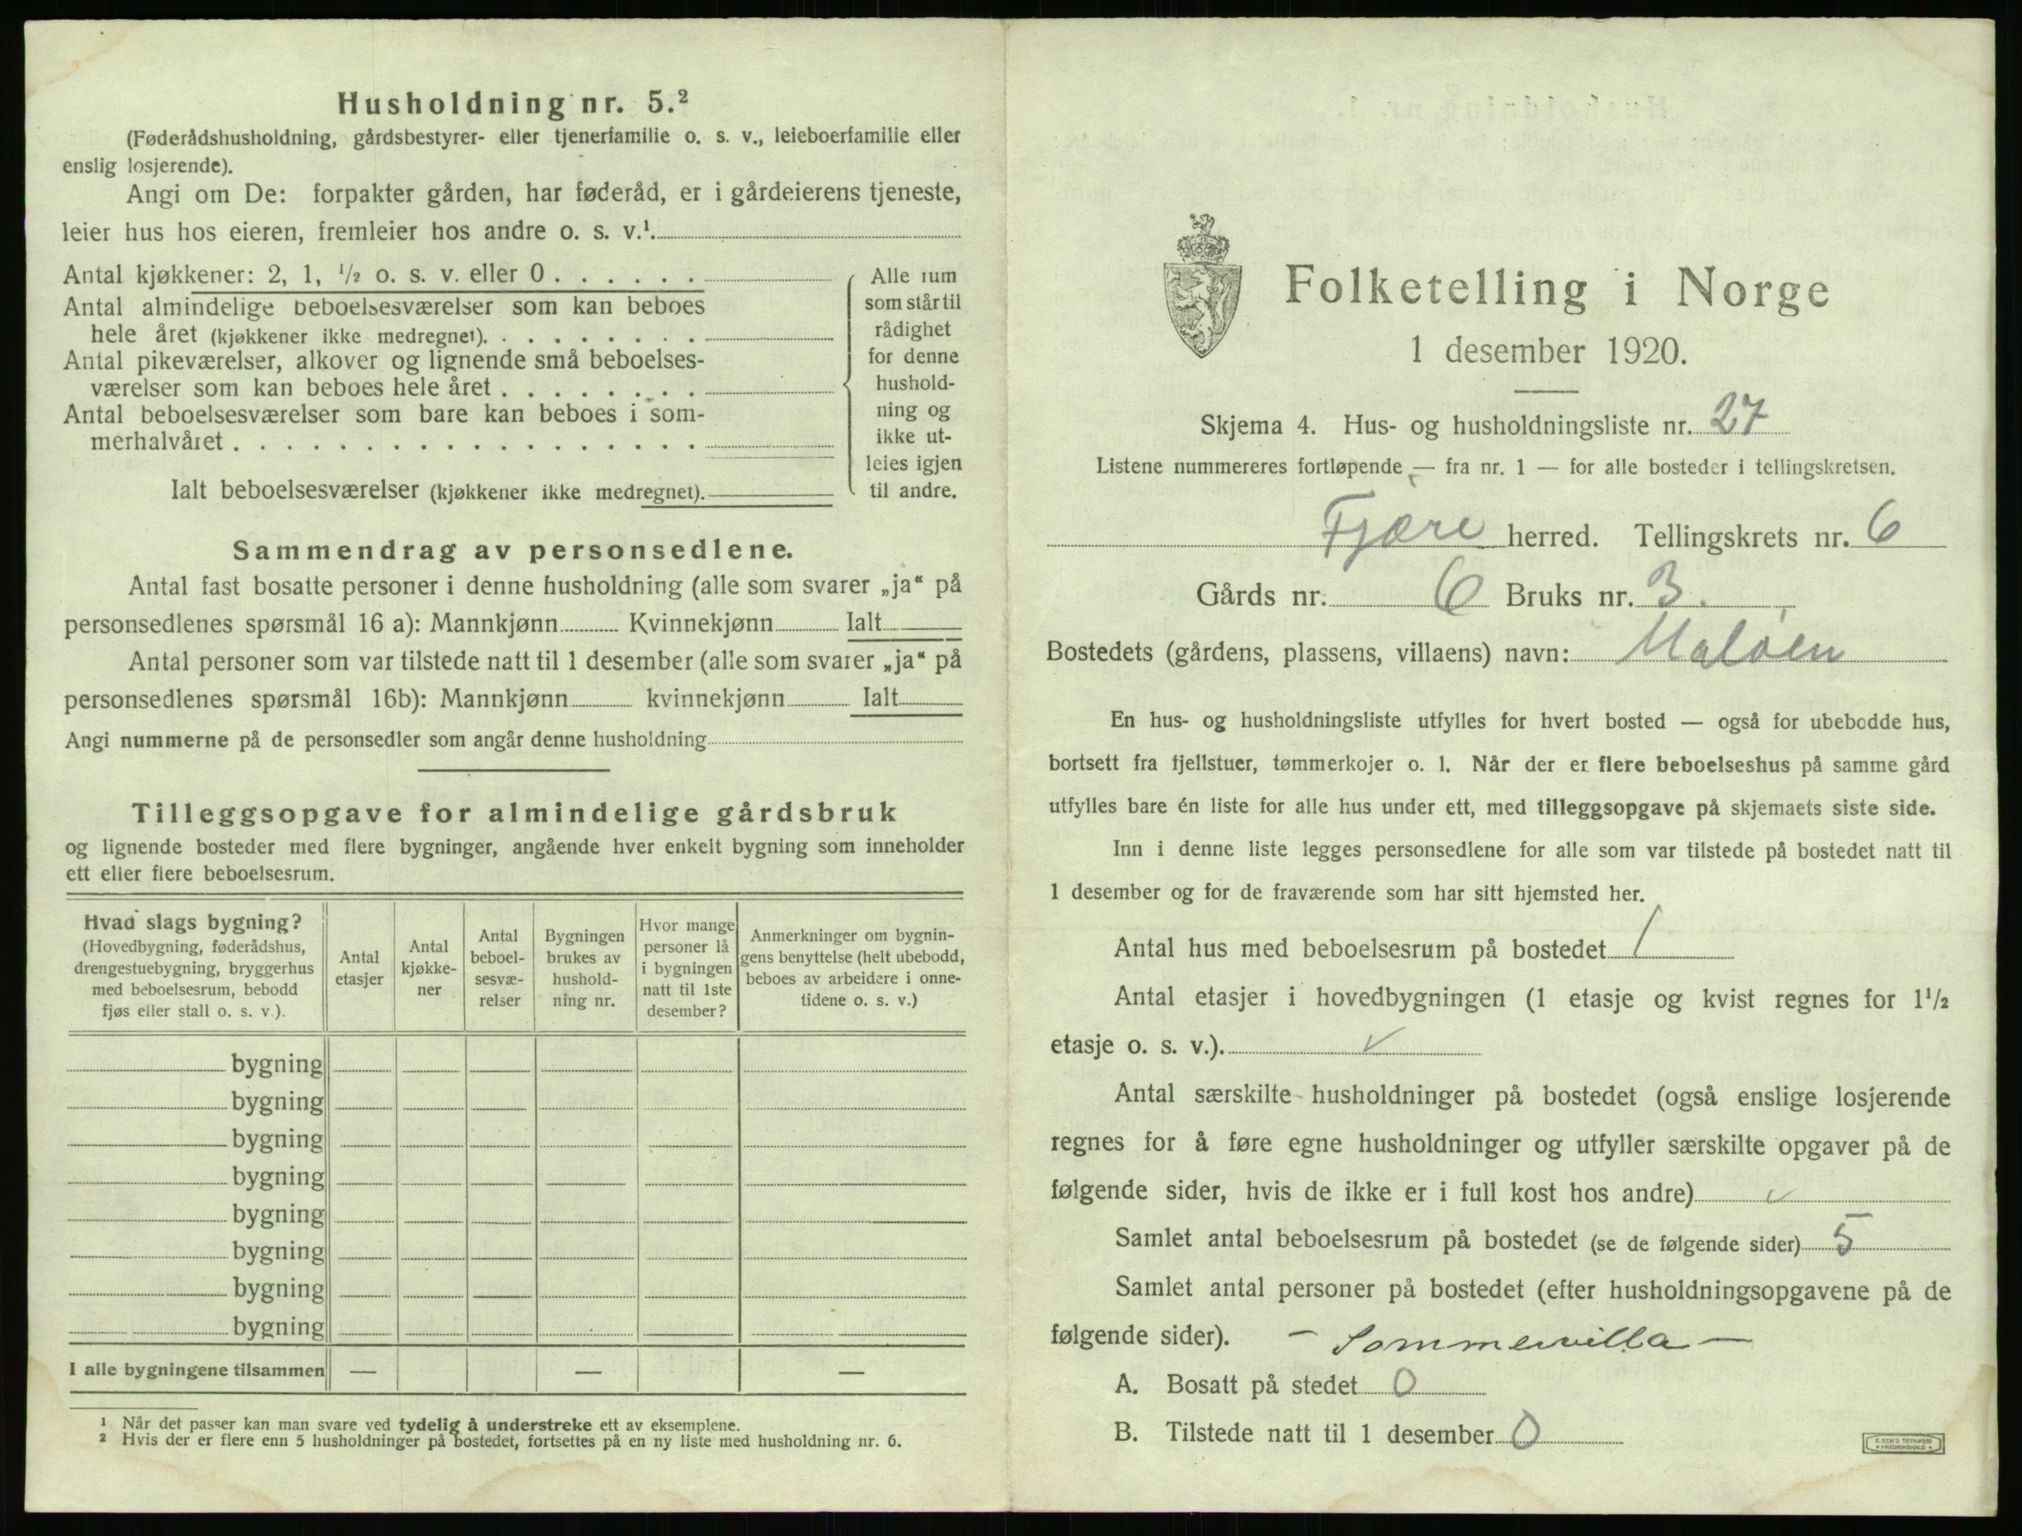 Husholdning nr. 5.²
(Føderådshusholdning, gårdsbestyrer- eller tjenerfamilie o. s. v., leieboerfamilie eller
enslig losjerende).
Angi om De: forpakter gården, har føderåd, er i gårdeierens tjeneste,
leier hus hos eieren, fremleier hos andre o. s. v.¹.
Antal kjøkkener: 2, 1, ½ o. s. v. eller 0 . . . . . .
Antal almindelige beboelsesværelser som kan beboes
hele året (kjøkkener ikke medregnet). . . . . . . . .
Antal pikeværelser, alkover og lignende små beboelses-
værelser som kan beboes hele året . . . . . . . .
Antal beboelsesværelser som bare kan beboes i som-
merhalvåret . . . . . . . . . . . . . . . . . .
Ialt beboelsesværelser (kjøkkener ikke medregnet).
Alle rum
som står til
rådighet
for denne
hushold-
ning og
ikke ut-
leies igjen
til andre.
Sammendrag av personsedlene.
Antal fast bosatte personer i denne husholdning (alle som svarer „ja“ på
personsedlenes spørsmål 16 a): Mannkjønn Kvinnekjønn Ialt
Antal personer som var tilstede natt til 1 desember (alle som svarer „ja“ på
personsedlenes spørsmål 16b): Mannkjønn kvinnekjønn Ialt
Angi nummerne på de personsedler som angår denne husholdning
Tilleggsopgave for almindelige gårdsbruk
og lignende bosteder med flere bygninger, angående hver enkelt bygning som inneholder
ett eller flere beboelsesrum.
Hvad slags bygning?
(Hovedbygning, føderådshus,
drengestuebygning, bryggerhus
med beboelsesrum, bebodd
fjøs eller stall o. s. v.).
Antal
etasjer
Antal
kjøkke-
ner
Antal
beboel-
sesvæ-
relser
Bygningen
brukes av
hushold-
ning nr.
Hvor mange
personer lå
i bygningen
natt til 1ste
desember?
Anmerkninger om bygnin-
gens benyttelse (helt ubebodd,
beboes av arbeidere i onne-
tidene o. s. v.)
bygning
bygning
bygning
bygning
bygning
bygning
bygning
bygning
I alle bygningene tilsammen — — —
¹ Når det passer kan man svare ved tydelig å understreke ett av eksemplene.
² Hvis der er flere enn 5 husholdninger på bostedet, fortsettes på en ny liste med husholdning nr. 6.
Folketelling i Norge
1 desember 1920.
Skjema 4. Hus- og husholdningsliste nr. 27
Listene nummereres fortløpende — fra nr. 1 — for alle bosteder i tellingskretsen.
Fjære herred. Tellingskrets nr. 6
Gårds nr. 6 Bruks nr. 3.
Bostedets (gårdens, plassens, villaens) navn: Maløen
En hus- og husholdningsliste utfylles for hvert bosted — også for ubebodde hus,
bortsett fra fjellstuer, tømmerkojer o. l. Når der er flere beboelseshus på samme gård
utfylles bare én liste for alle hus under ett, med tilleggsopgave på skjemaets siste side.
Inn i denne liste legges personsedlene for alle som var tilstede på bostedet natt til
1 desember og for de fraværende som har sitt hjemsted her.
Antal hus med beboelsesrum på bostedet 1
Antal etasjer i hovedbygningen (1 etasje og kvist regnes for 1½
etasje o. s. v.). ✓
Antal særskilte husholdninger på bostedet (også enslige losjerende
regnes for å føre egne husholdninger og utfyller særskilte opgaver på de
følgende sider, hvis de ikke er i full kost hos andre) ✓
Samlet antal beboelsesrum på bostedet (se de følgende sider) 5
Samlet antal personer på bostedet (efter husholdningsopgavene på de
følgende sider). — Sommervilla —
A. Bosatt på stedet 0
B. Tilstede natt til 1 desember 0